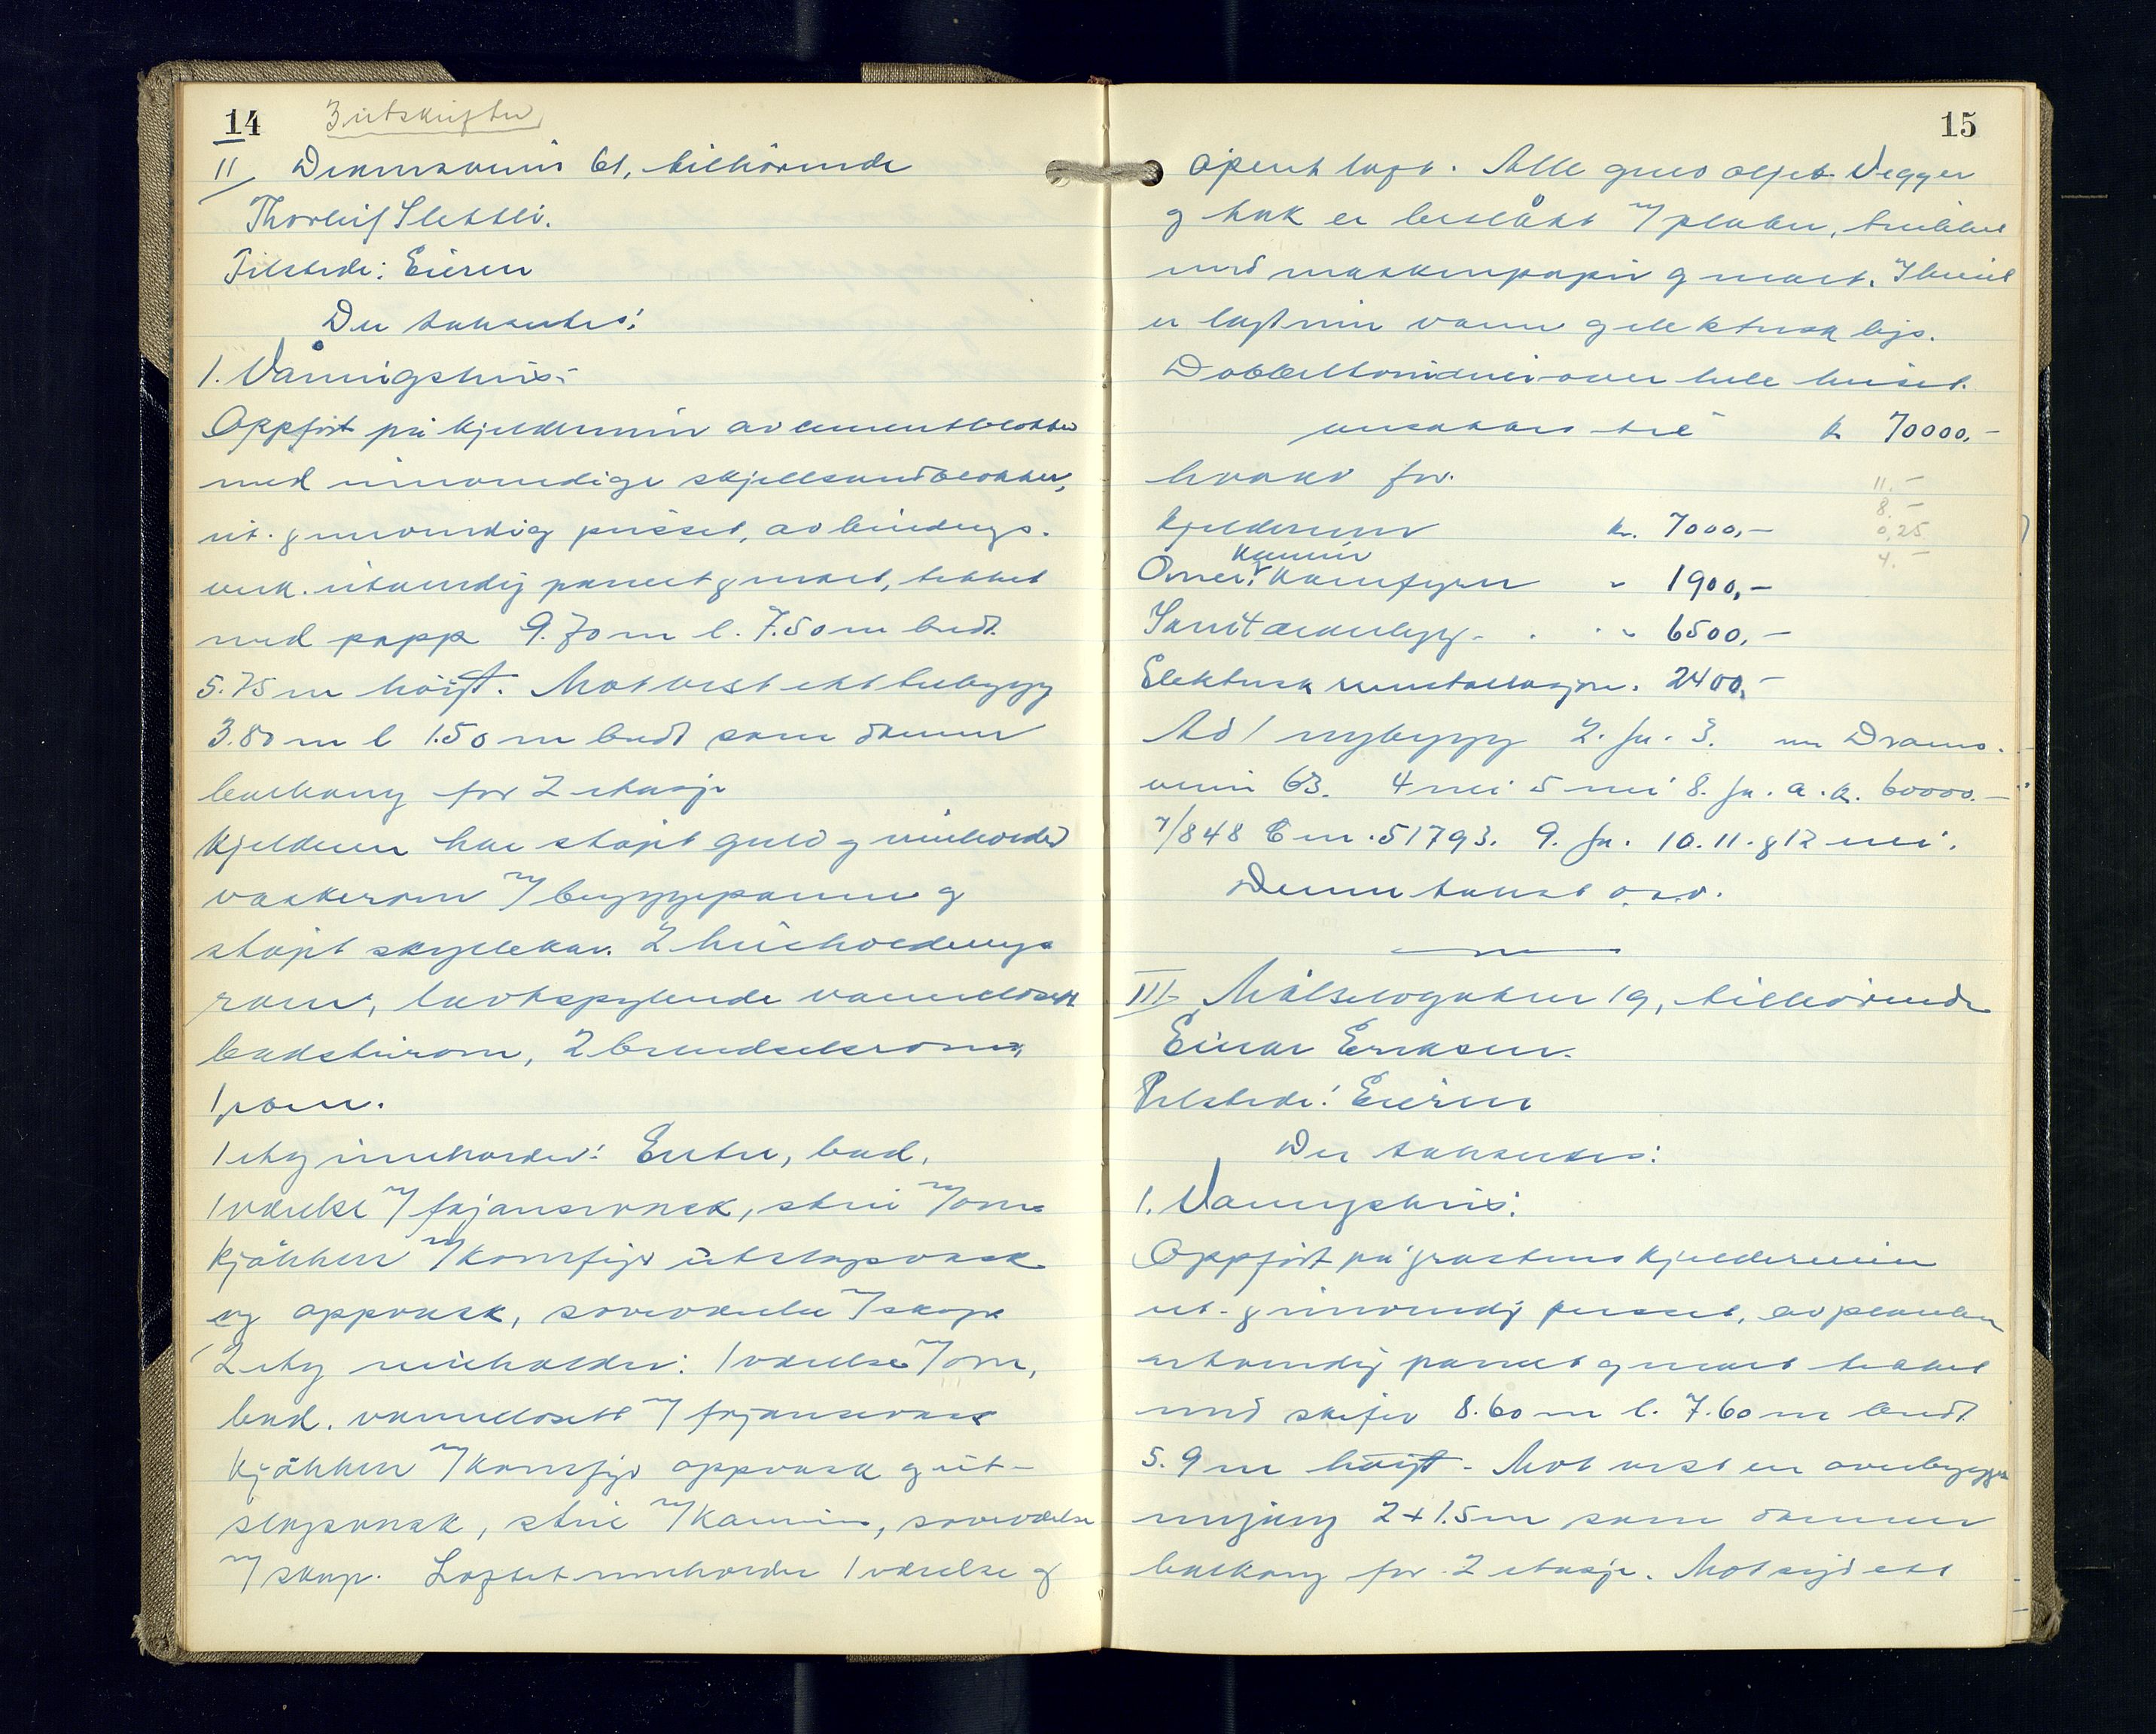 14 3 utskrifter
II Dramsveien 61, tilhörende
Thorleif Slettli.
Tilstede: Eieren
Der takseertes:
1. Våningshus:
Oppfört på kjeldermur av cementblokker
med innvendige skjellsandblokker,
ut- & innvendig pusset, av bindings-
verk. utvendig panelt & malt, tekket
med papp 9.70 m l. 7.50 m bredt
5.75 m höigt. Mot vest ett tilbygg
3.80 m l 1.50 m bredt som danner
balkong for 2 etasje
Kjelderen har stöpt gulv og inneholder
vaskerom m/ bryggepanne og
stöpt skyllekar. 2 husholdnings
rom, tørtspylende vannklosett
badsturom, 2 brendselsrom,
1 rom.
1 etg inneholder: Entre, bad,
1 værelse m/ fajansevask, stue m/ ovn
kjökken m/ komfyr utslagsvask
og oppvask, soveværelse m/ skap
2 etg inneholder: 1 værelse m/ ovn,
bad. vannklosett m/ fajansevask
kjökken m/ komfyr oppvask og ut-
slagsvask, stue m/ kamin, soveværelse
m/ skap. Loftet inneholder 1 værelse og
15
åpent loft. Alle gulv oljet. Vegger
og tak er beslått m/ plater, trukket
med maskinpapir og malt. I huset
er lagt inn vann og elektrisk lys.
Dobbelte vinduer over hele huset.
ansattes til kr 70000,-
hvorav for.
11.-
8.-
0,25
4.-
Kjeldermur kr. 7000,-
Ovner, kamin Komfyrer " 1900,-
Sanitæranlegg . . " 6500,-
Elektrisk installasjon. 2400,-
Ad 1 nybygg 2. Ja. 3. nr Drams-
veien 63. 4 nei 5 nei 8. Ja. a. kr. 60000.-
7/8 48 C nr. 51793. 9. Ja. 10. 11. & 12 nei.
Denne takst o.s.v.
III. Målselvgaten 19, tilhörende
Einar Eriksen.
Tilstede: Eieren
Der takseertes:
1. Våningshus:
Oppfört på gråstens kjeldermur
ut- & innvendig pusset, av planker
utvendig panelt og malt tekket
med skifer 8.60 m l. 7.60 m bredt
5.9 m höigt - Mot vest en overbygget
inngang 2 x 1.5 m som danner
balkong for 2 etasje. Mot syd ett